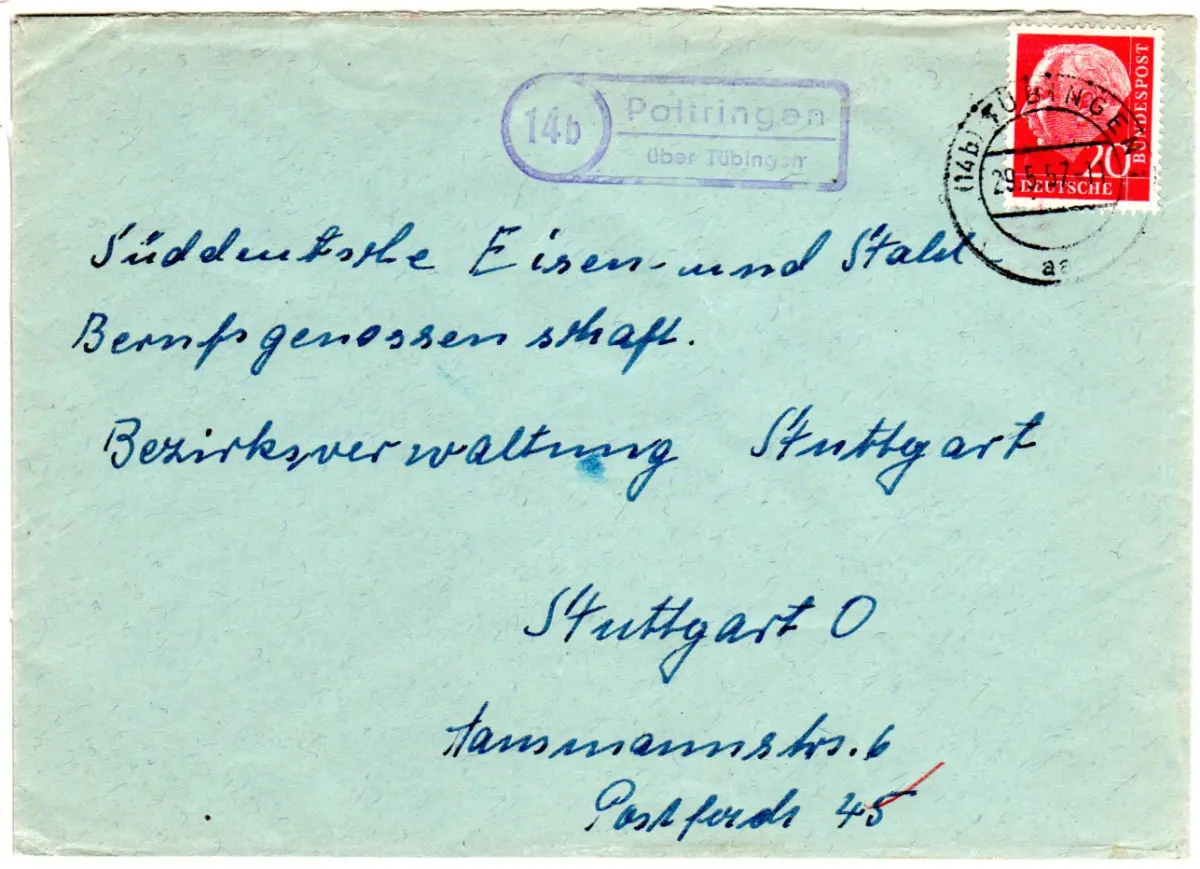 14b
Poltringen
über Tübingen
(14b) TÜBINGEN
29.5.57-11
aa
20
DEUTSCHE
BUNDESPOST
Süddeutsche Eisen- und Stahl-
Berufsgenossenschaft.
Bezirksverwaltung Stuttgart
Stuttgart O
6
Postfach 45